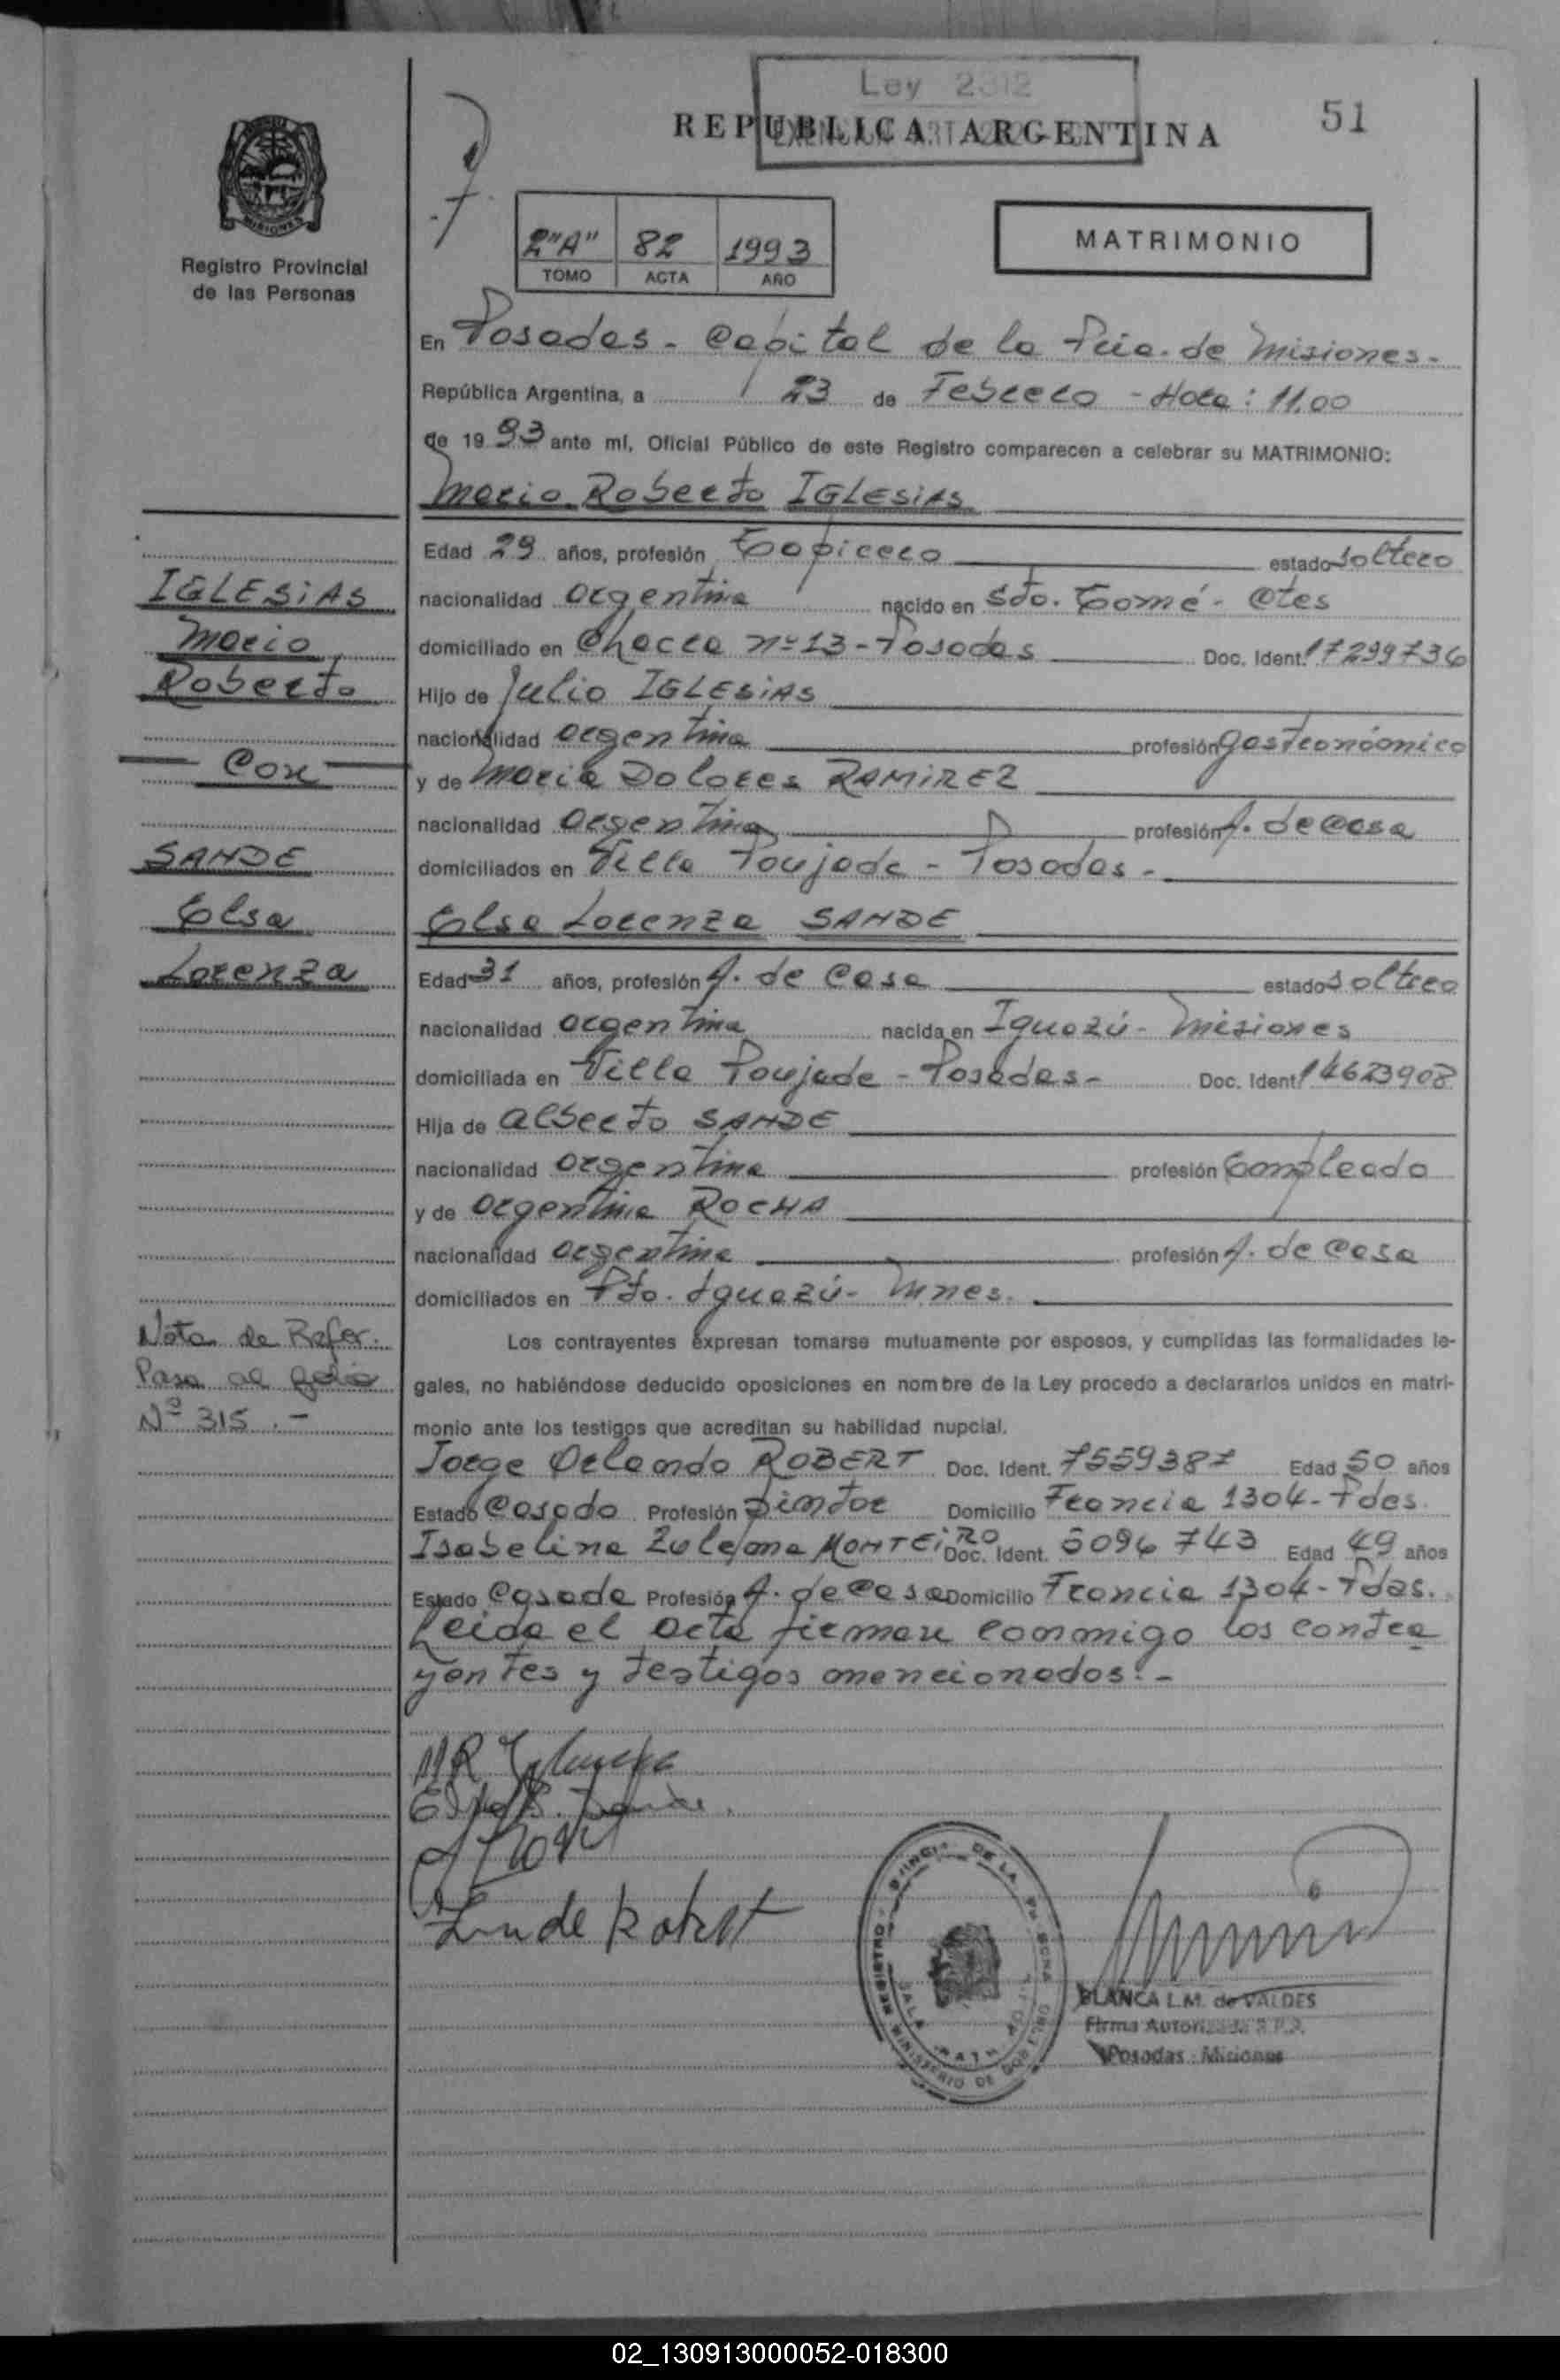 Ley 2312
REPUBLICA ARGENTINA
51
MISIONES
Registro Provincial
de las Personas
2"A" 82 1993
TOMO ACTA AÑO
MATRIMONIO
En Posadas - Capital de la Pcia. de Misiones.
República Argentina, a 23 de Febrero - Hora: 11.00
de 1993 ante mí, Oficial Público de este Registro comparecen a celebrar su MATRIMONIO:
Mario Roberto IGLESIAS
Edad 29 años, profesión Tapicero estado soltero
nacionalidad argentina nacido en Sto. Tomé - Ctes
domiciliado en Chacra nº 13 - Posadas Doc. Ident. 17299736
Hijo de Julio IGLESIAS
nacionalidad argentina profesión gastronóonico
y de Maria Dolores RAMIREZ
nacionalidad argentina profesión A. de Casa
domiciliados en Villa Poujade - Posadas.
Elsa Lorenza SANDE
Edad 31 años, profesión A. de Casa estado soltera
nacionalidad argentina nacida en Iguazú - Misiones
domiciliada en Villa Poujade - Posadas - Doc. Ident. 14623908
Hija de Alberto SANDE
nacionalidad argentina profesión Empleado
y de Argentina ROCHA
nacionalidad argentina profesión A. de Casa
domiciliados en Pto. Iguazú - Mnes.
Los contrayentes expresan tomarse mutuamente por esposos, y cumplidas las formalidades le-
gales, no habiéndose deducido oposiciones en nombre de la Ley procedo a declararlos unidos en matri-
monio ante los testigos que acreditan su habilidad nupcial.
Jorge Orlando ROBERT Doc. Ident. 7559387 Edad 50 años
Estado Casado Profesión Pintor Domicilio Francia 1304 - Pdas.
Isabelina Zulema MONTEIRO Doc. Ident. 5096743 Edad 49 años
Estado Casada Profesión A. de Casa Domicilio Francia 1304 - Pdas.
Leida el acta firman conmigo los contra
yentes y testigos mencionados.-
IGLESIAS
Mario
Roberto
Con
SANDE
Elsa
Lorenza
Nota de Refer.
Pasa al folio
Nº 315.-
BLANCA L.M. de VALDES
Firma Autorizada R.P.P.
Posadas - Misiones
02_130913000052-018300